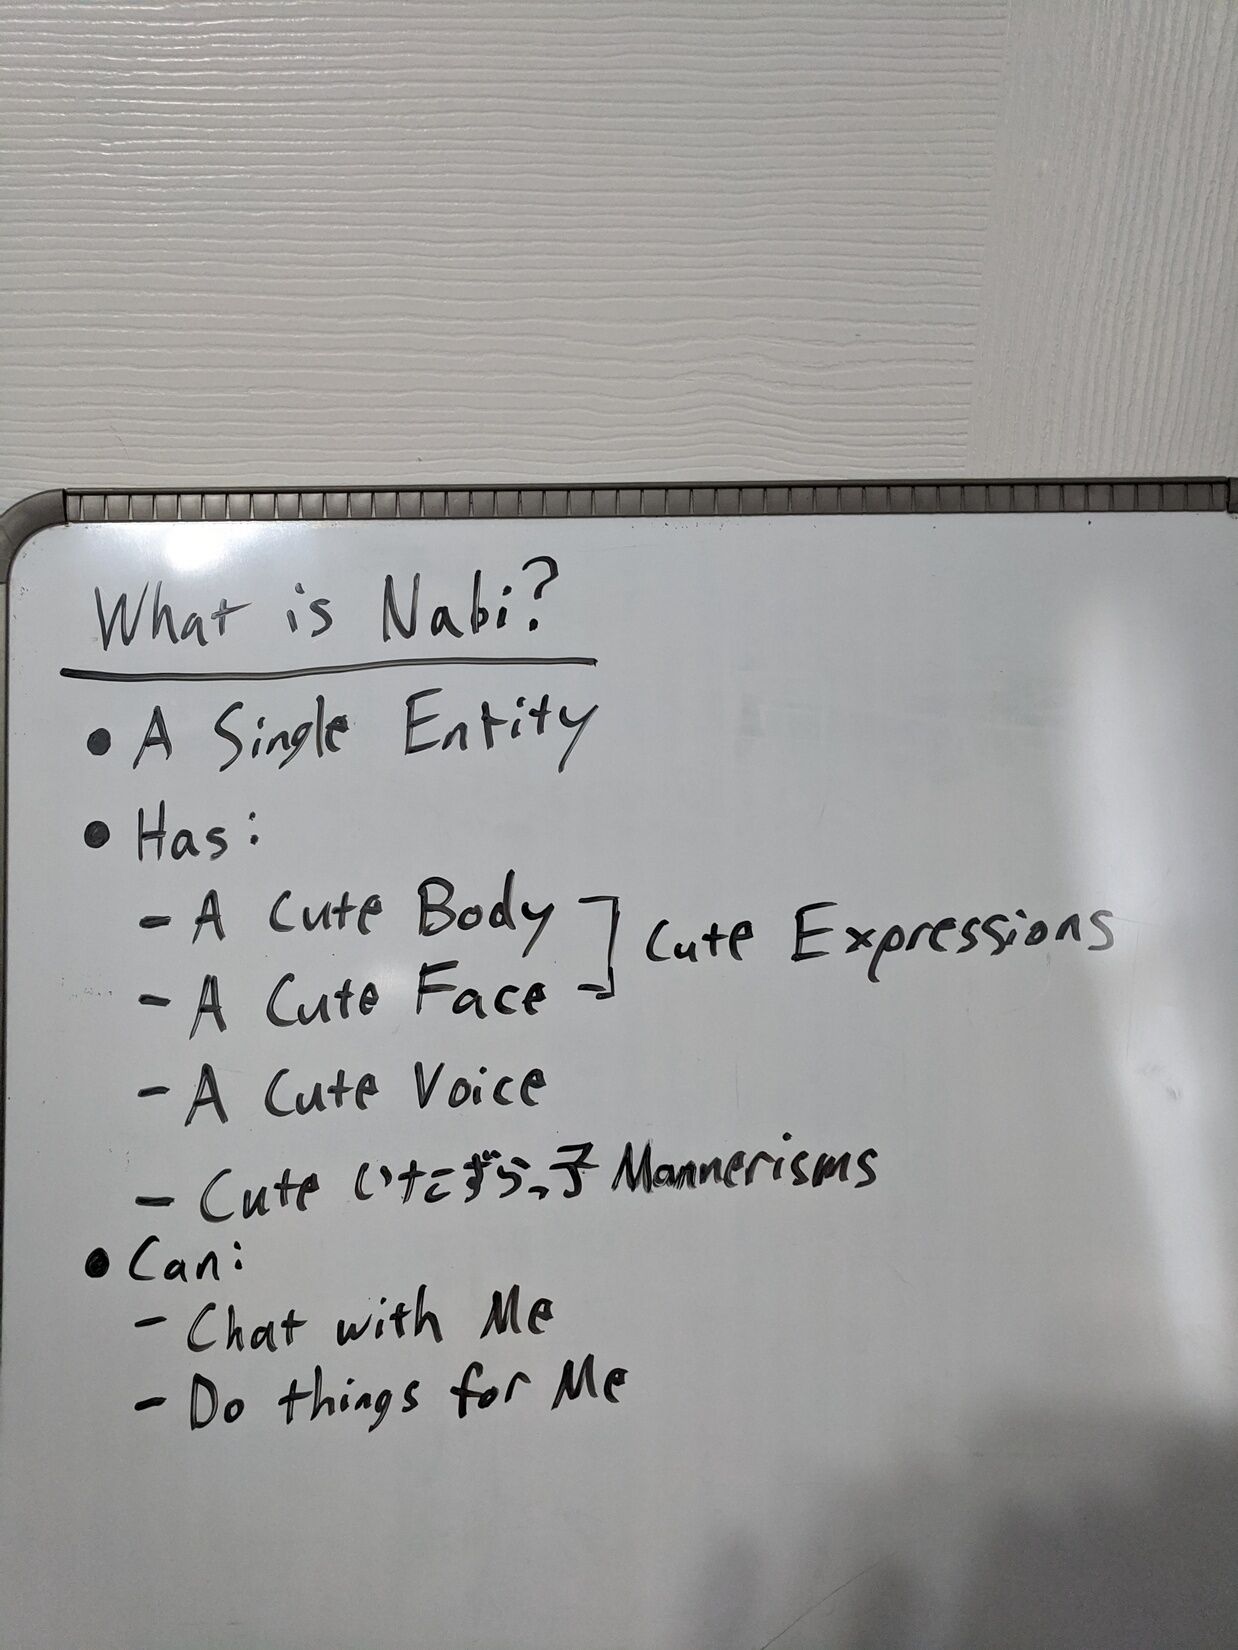 What is Nabi?
• A Single Entity
• Has:
- A Cute Body
- A Cute Face
Cute Expressions
- A Cute Voice
- Cute いたずらっ子 Mannerisms
• Can:
- Chat with Me
- Do things for Me